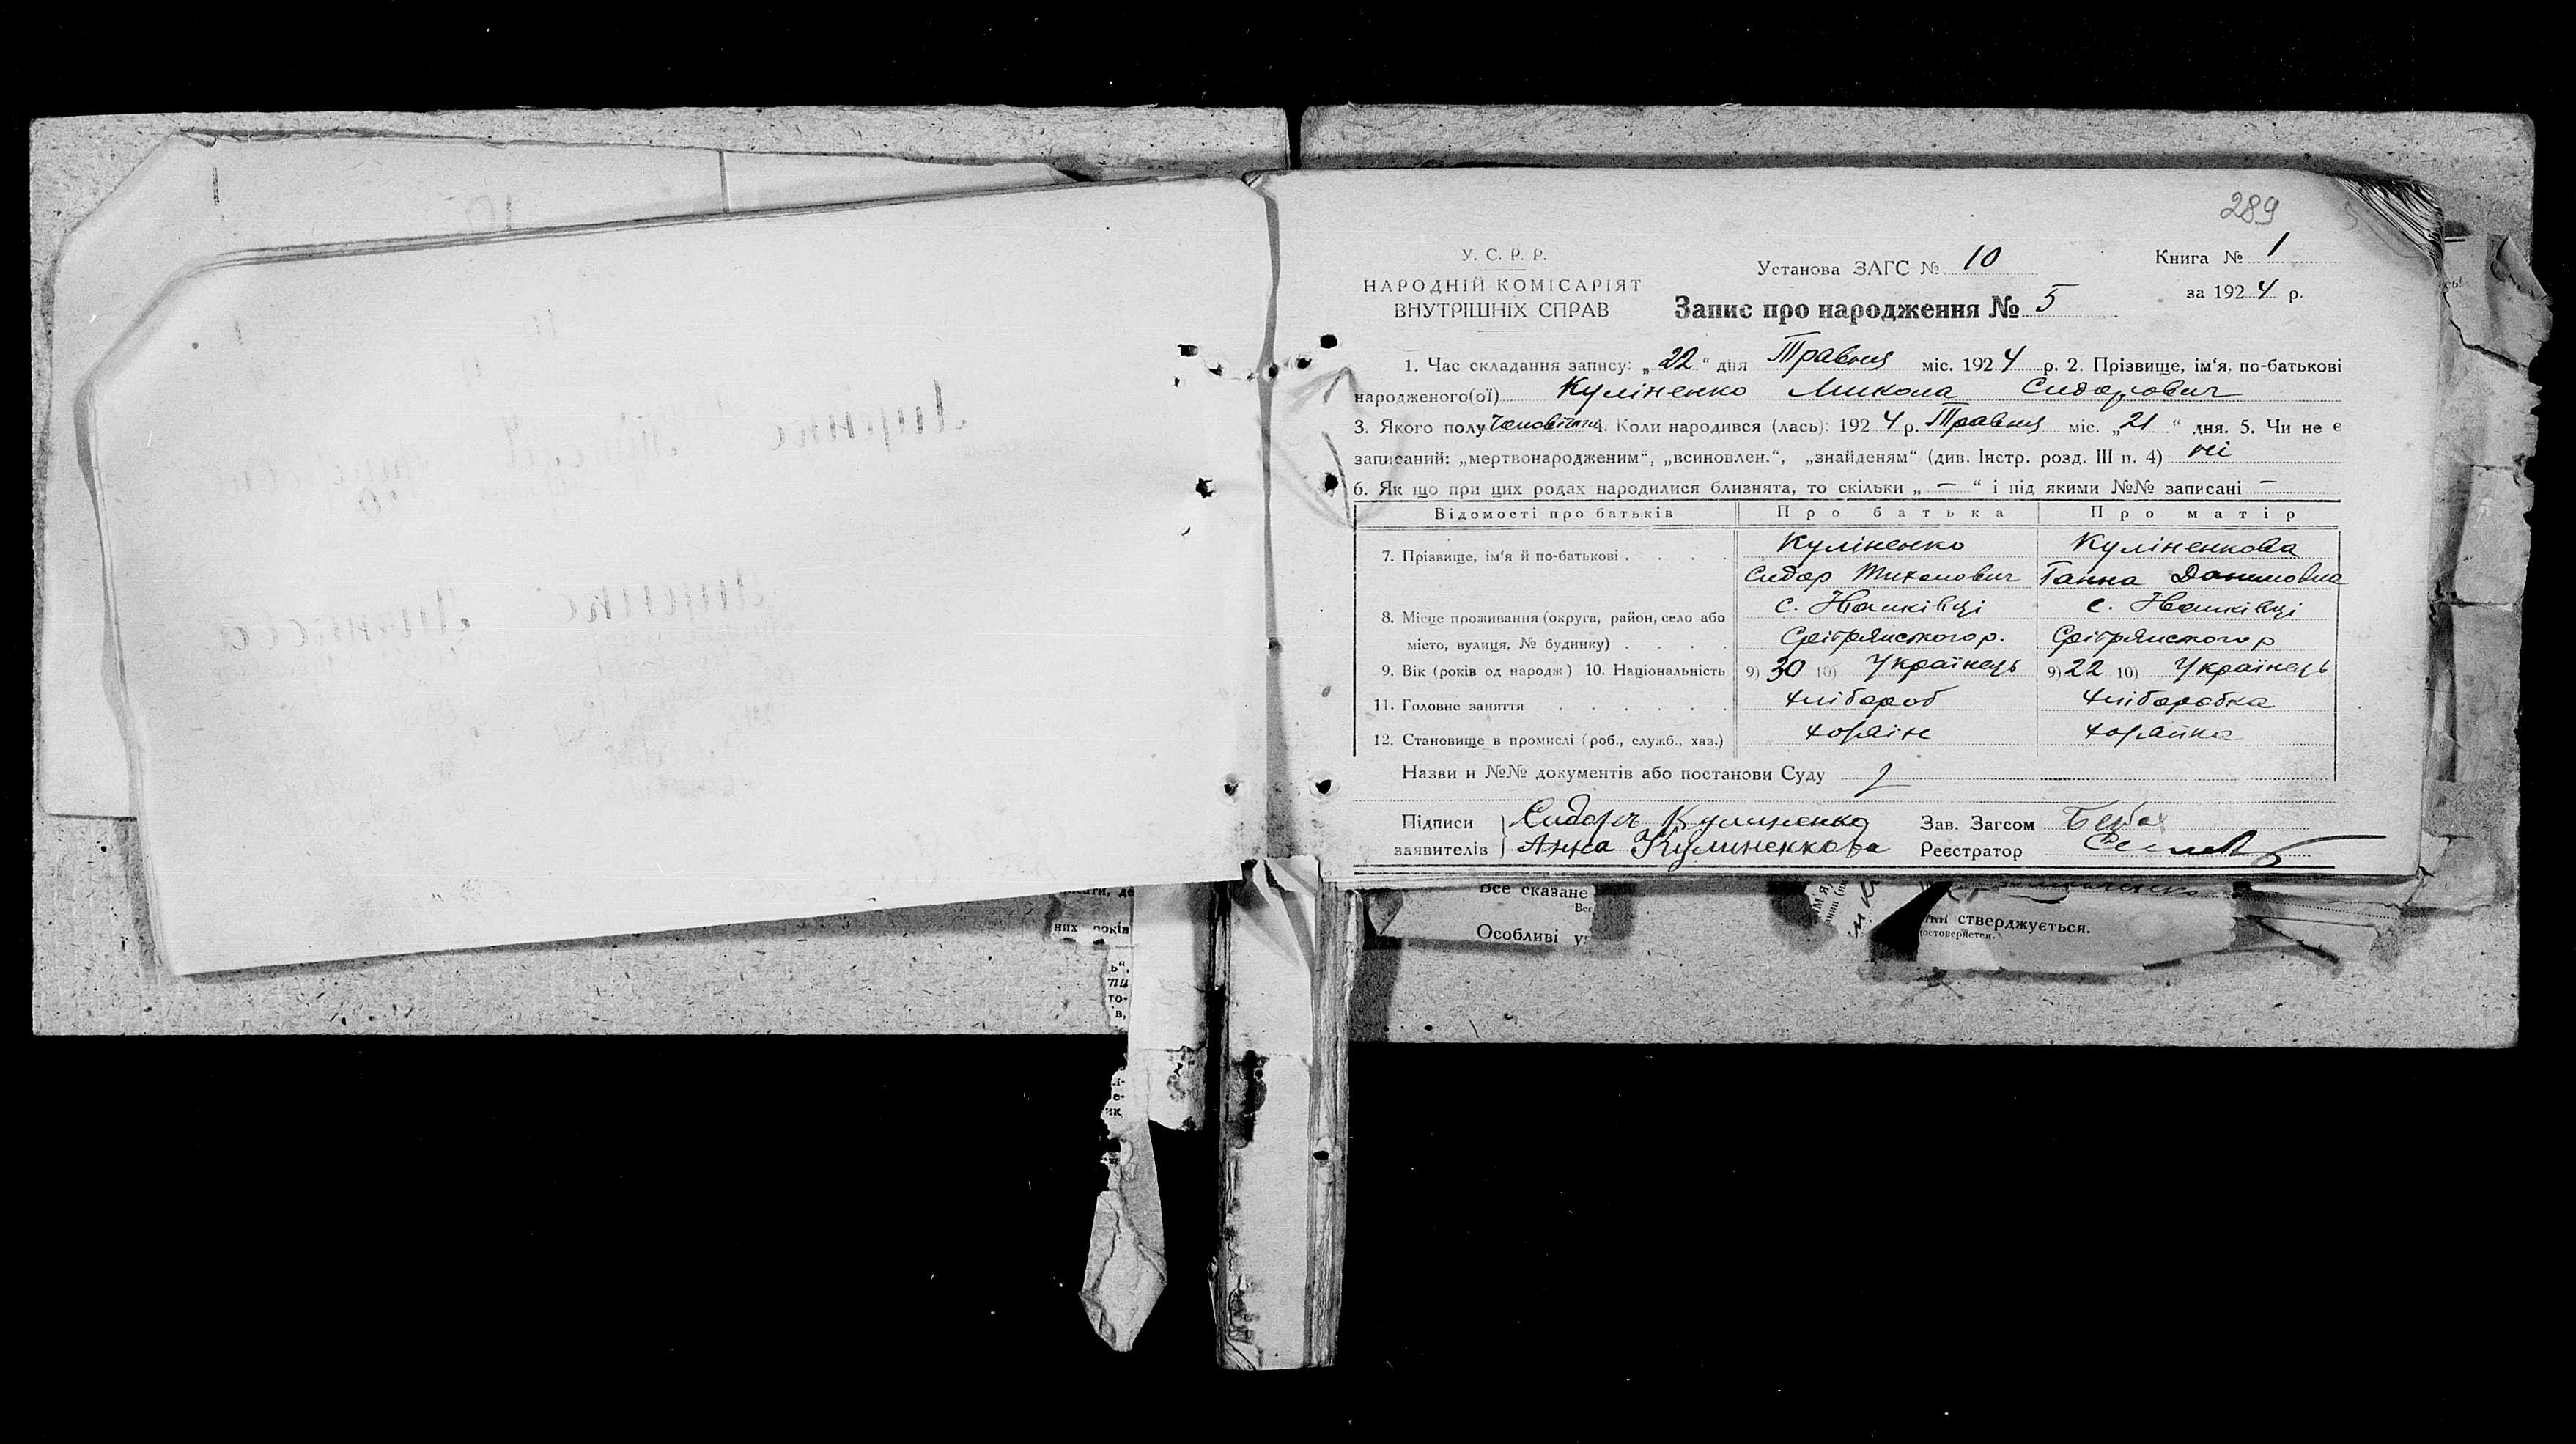 289
У. С. Р. Р.
НАРОДНІЙ КОМІСАРІЯТ
ВНУТРІШНІХ СПРАВ
Установа ЗАГС № 10
Книга № 1
за 1924 р.
Запис про народження № 5
1. Час складання запису: „22“ дня Травня міс. 1924 р. 2. Прізвище, ім‘я, по-батькові
народженого(ої) Куліненко Микола Сидорович
3. Якого полу 4. Коли народився (лась): 1924 р. Травня міс. „21“ дня. 5. Чи не є
записаний: „мертвонародженим“, „всиновлен.“, „знайденям“ (див. Інстр. розд. III п. 4) ні
6. Як що при цих родах народилися близнята, то скільки „ — “ і під якими №№ записані —
Відомості про батьків Про батька Про матір
7. Прізвище, ім‘я й по-батькові . . . . Куліненко Куліненкова
Сидор Ганна Даниловна
8. Місце проживання (округа, район, село або с. с.
місто, вулиця, № будинку) . . . .
9. Вік (років од народж.) 10. Національність 9) 30 10) Українець 9) 22 10) Українець
11. Головне заняття . . . . . . Хлібороб Хліборобка
12. Становище в промислі (роб., служб., хаз.) хозяін хозяйка
Назви и №№ документів або постанови Суду
Підписи Сидоръ Кулиненко Зав. Загсом
заявителів Анна Кулиненкова Реєстратор
Все сказане
Особливі
них років
стверджується.